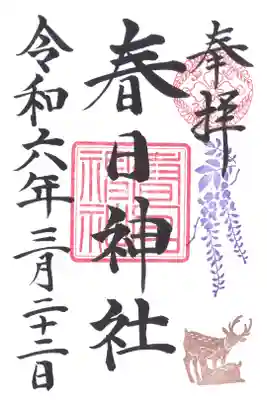 奉拝
春日神社
春日神社
令和六年三月二十二日